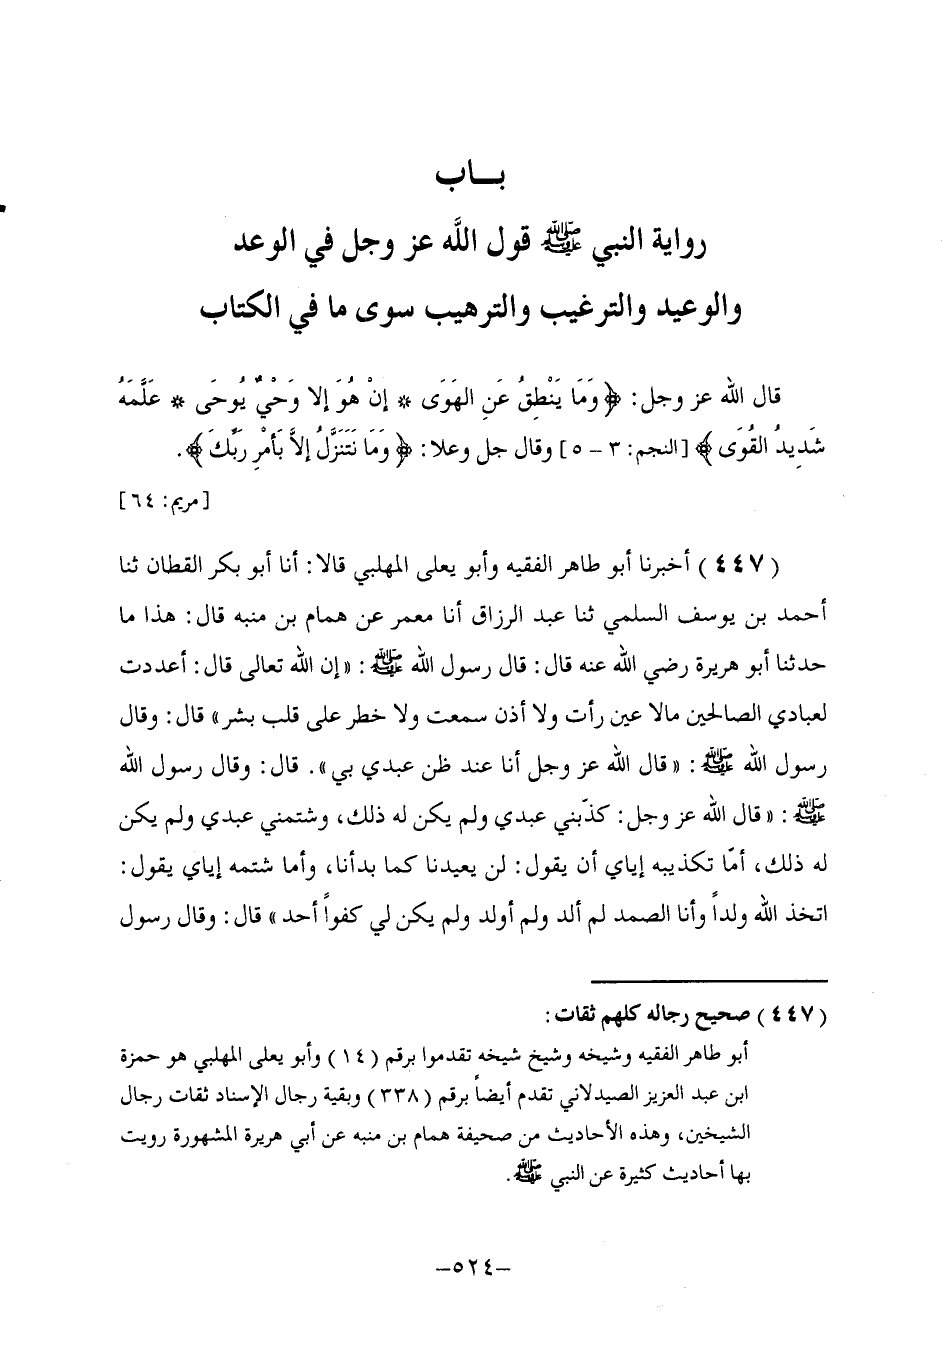 بـــاب
رواية النبي ﷺ قول اللَّه عز وجل في الوعد
والوعيد والترغيب والترهيب سوى ما في الكتاب
قال الله عز وجل: ﴿ وَمَا يَنْطِقُ عَنِ الهَوَى * إنْ هُوَ إلا وَحْيٌ يُوحَى * عَلَّمَهُ
شَدِيدُ القُوَى ﴾ [ النجم: ٣ – ٥ ] وقال جل وعلا: ﴿ وَمَا نَتَنَزَّلُ إلاَّ بَأمْرِ رَبِّكَ ﴾.
[ مريم: ٦٤ ]
( ٤٤٧ ) أخبرنا أبو طاهر الفقيه وأبو يعلى المهلبي قالا: أنا أبو بكر القطان ثنا
أحمد بن يوسف السلمي ثنا عبد الرزاق أنا معمر عن همام بن منبه قال: هذا ما
حدثنا أبو هريرة رضي الله عنه قال: قال رسول الله ﷺ : « إن الله تعالى قال: أعددت
لعبادي الصالحين مالا عين رأت ولا أذن سمعت ولا خطر على قلب بشر » قال: وقال
رسول الله ﷺ : « قال الله عز وجل أنا عند ظن عبدي بي ». قال: وقال رسول الله
ﷺ : « قال الله عز وجل: كذّبني عبدي ولم يكن له ذلك، وشتمني عبدي ولم يكن
له ذلك، أمّا تكذيبه إياي أن يقول: لن يعيدنا كما بدأنا، وأما شتمه إياي يقول:
اتخذ الله ولداً وأنا الصمد لم ألد ولم أولد ولم يكن لي كفواً أحد » قال: وقال رسول
( ٤٤٧ ) صحيح رجاله كلهم ثقات:
أبو طاهر الفقيه وشيخه وشيخ شيخه تقدموا برقم ( ١٤ ) وأبو يعلى المهلبي هو حمزة
ابن عبد العزيز الصيدلاني تقدم أيضاً برقم ( ٣٣٨ ) وبقية رجال الإسناد ثقات رجال
الشيخين، وهذه الأحاديث من صحيفة همام بن منبه عن أبي هريرة المشهورة رويت
بها أحاديث كثيرة عن النبي ﷺ.
–٥٢٤–